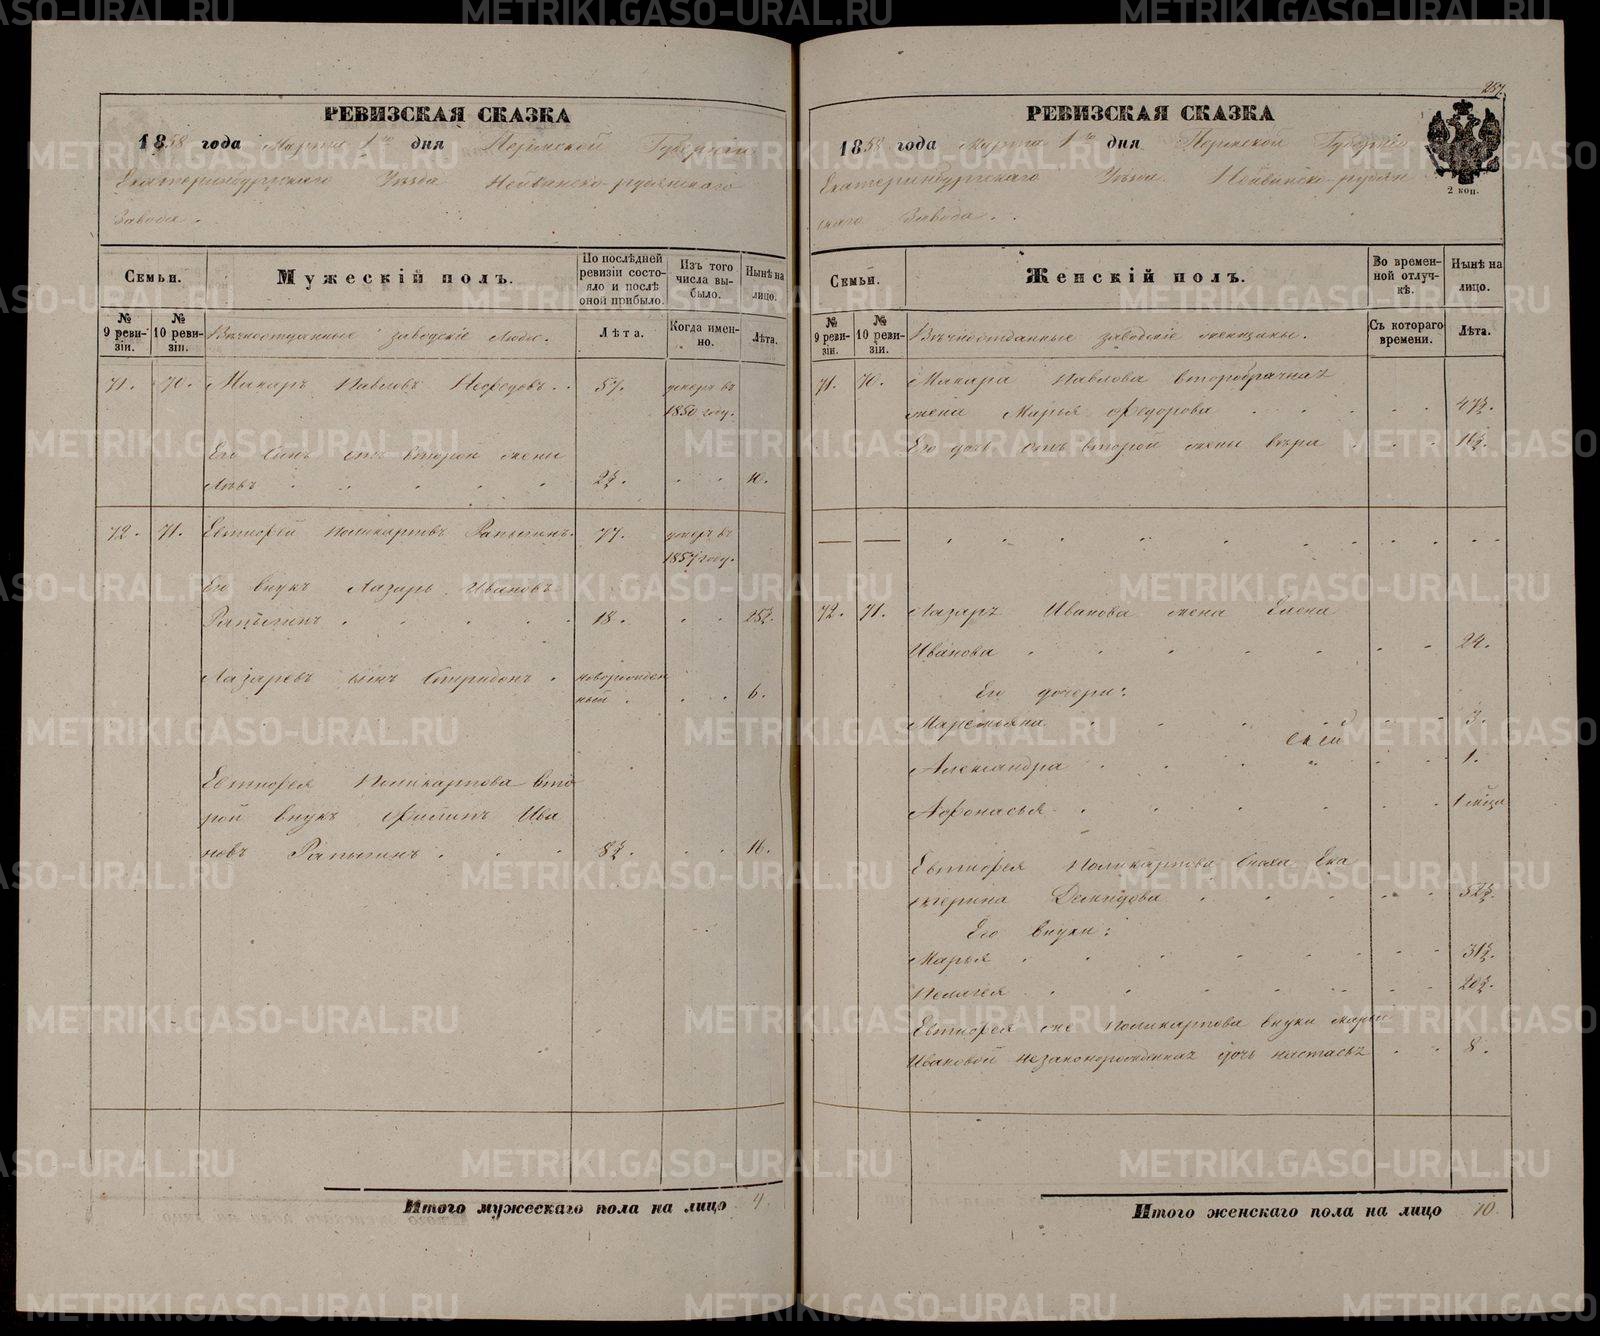 РЕВИЗСКАЯ СКАЗКА
1858 года Марта 1го дня Пермской Губернии
Екатеринбургскаго Уѣзда Нейвинско-рудянскаго
Завода.
Семьи.
Мужескій полъ.
По послѣдней ревизіи состояло и послѣ оной прибыло.
Изъ того числа выбыло.
Нынѣ на лицо.
№ 9 ревизіи.
№ 10 ревизіи.
Вѣчноотданные заводскіе Люди.
Лѣта.
Когда именно.
Лѣта.
71. 70. Макаръ Павловъ 57.
1850 году.
Его Сынъ отъ второй жены
Левъ 2½. 10.
72. 71. Евтифей Поликарповъ Рапыгинъ. 77.
1857 году.
Его внукъ Лазарь Ивановъ
Рапыгинъ 18.
Лазаревъ сынъ Спиридонъ. новорожден
ный. 6.
Евтифея Поликарпова вто
рой внукъ Филипъ Ива
новъ Рапыгинъ. 8½. 16.
Итого мужескаго пола на лицо 4.
257.
РЕВИЗСКАЯ СКАЗКА
1858 года Марта 1го дня Пермской Губерніи
Екатеринбургскаго Уѣзда Нейвинско-рудян
скаго Завода.
2 коп.
Семьи.
Женскій полъ.
Во временной отлучкѣ.
Нынѣ на лицо.
№ 9 ревизіи.
№ 10 ревизіи.
Вѣчноотданные заводскіе женщины.
Съ котораго времени.
Лѣта.
71. 70. Макара Павлова второбрачная
жена Марья Федорова 47½.
Его дочь отъ второй жены Вѣра 16½.
72. 71. Лазаря Иванова жена Елена
Иванова 24.
Его дочери:
3.
Александра 1.
Афонасья
Евтифея Поликарпова сноха Ека
терина Демидова 52½.
Его внуки:
Марья 31½.
Пелагея 20½.
Евтифея же Поликарпова внуки Марьи
Ивановой незаконорожденная дочь Настасья 8.
Итого женскаго пола на лицо 10.
METRIKI.GASO-URAL.RU